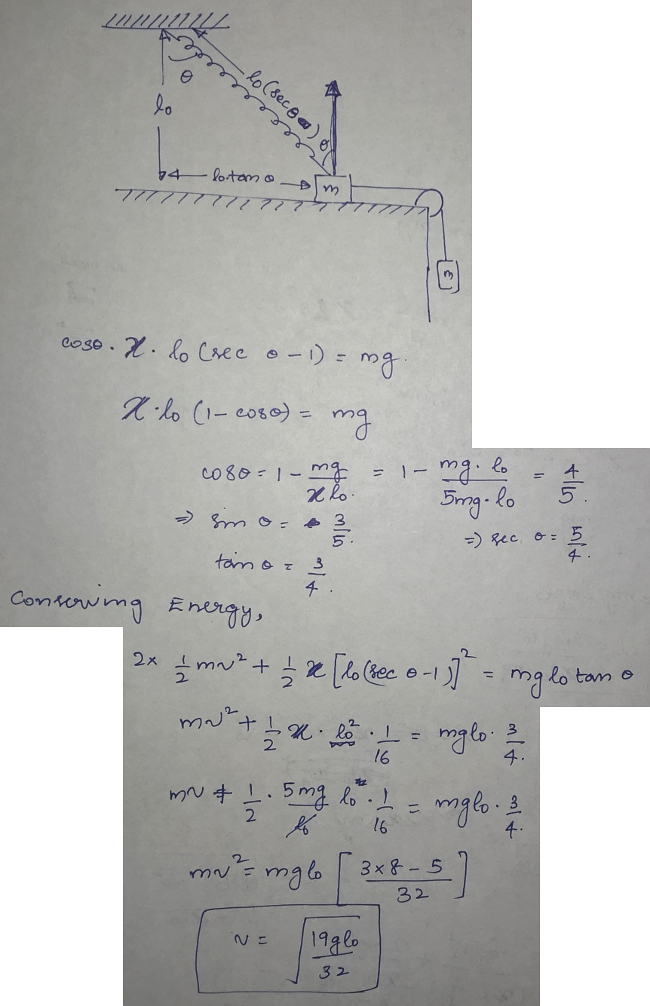 θ
l₀
l₀(secθ
θ
l₀ tan θ
m
m
cosθ . x . l₀ (sec θ - 1) = mg.
x . l₀ (1 - cosθ) = mg
cosθ = 1 - mg/xl₀. = 1 - mg. l₀/5mg. l₀ = 4/5.
⇒ sin θ = 3/5. ⇒ sec θ = 5/4.
tan θ = 3/4.
Conserving Energy,
2× 1/2 mv² + 1/2 x [l₀(sec θ - 1)]² = mg l₀ tan θ
mv² + 1/2 x . l₀² . 1/16 = mgl₀. 3/4.
mv + 1/2 . 5mg/l₀ l₀² . 1/16 = mgl₀. 3/4.
mv² = mgl₀ [3×8 - 5/32]
v = √19gl₀/32